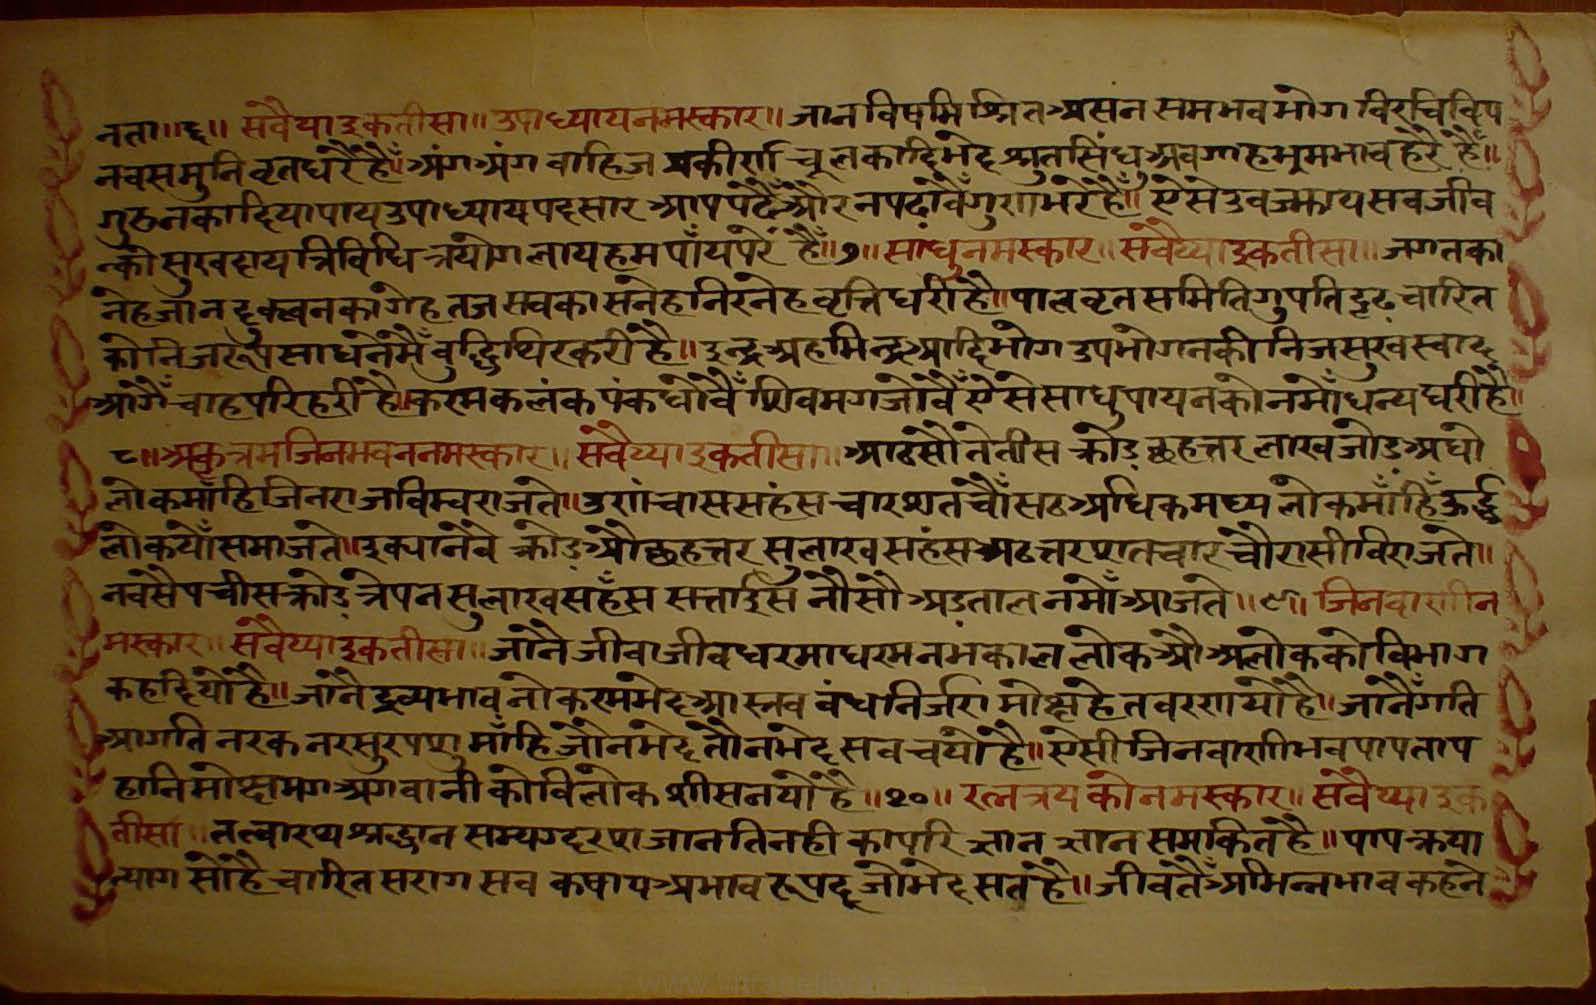 नता॥६॥ सवैया इकतीसा॥ उपाध्याय नमस्कार॥ जान विषमिश्रित असन सम भव भोग विरचि विष
नवस मुनिवृत धरैं हैं॥ अंग अंग वाहिज प्रकीर्ण चूलकादि भेद श्रुतसिंधु अवगाह भ्रमभाव हरैं हैं॥
गुठनकादि यापाय उपाध्याय पद सार आप पढैं और न पढावैं गुण भरे हैं॥ ऐसे उवज्झाय सव जीव
न्को सुखदाय त्रिविधि त्रयोग लाय हम पाँय परैं हैं॥७॥ साधु नमस्कार॥ सवैय्या इकतीसा॥ जगत का
नेह जान दृक्वनका गेह तज सवका सनेह निरनेह वृत्ति धरी है॥ पाल वृत समिति गुपति दृढ़ चारित
को निज रूप साधनेमैं वुद्धि थिर करी है॥ इन्द्र अहमिन्द्र आदि भोग उपभोगनकी निज सुख स्वाद
आगैं चाह परिहरी है॥ करम कलंक पंक धोवैं शिवमग जोवैं ऐसे साधु पायनको नमों धन्य घरी है॥
८॥ अकृत्रम जिनभवन नमस्कार॥ सवैय्या इकतीसा॥ आठसौ तेतीस क्रोड़ छहत्तर लाख जोड़ अधो
लोकमाँहि जिनराज विम्व राजते॥ उणंचास सहंस चारशत चौंसठ अधिक मध्य लोकमाँहिँ ऊर्द्ध
लोक यों समाजते॥ इक्यानवे क्रोड़ औ छहत्तर सुलाख सहंस अठत्तर शत चार चौरासी विराजते॥
नवसै पचीस क्रोड़ त्रेपन सुलाख सहँस सत्ताईस नौसौ अड़ताल नमों आजते॥९॥ जिनवाणी न
मस्कार॥ सवैय्या इकतीसा॥ जानै जीवाजीव धरमाधरम नभ काल लोक औ अलोकको विभाग
कह दियो है॥ जानै द्रव्य भाव नोकरम भेद आस्रव वंध निर्जरा मोक्ष हेत वरणयो है॥ जानैं गति
आगति नरक नर सुर पशु माँहि जौन भेद तौन भेद सव चयो है॥ ऐसी जिनवाणी भव पाप ताप
हानि मोक्षमग अगवानीको विलोक शीस नयो है॥१०॥ रत्नत्रयको नमस्कार॥ सवैय्या इक
तीसा॥ तत्वारथ श्रद्धान सम्यग्दरश जान तिनही का परिज्ञान ज्ञान समकित है॥ पाप क्रया
त्याग सों है चारित सराग सव कषाय अभाव रूप दूजो भेद सत है॥ जीवतैं अभिन्न भाव कहने